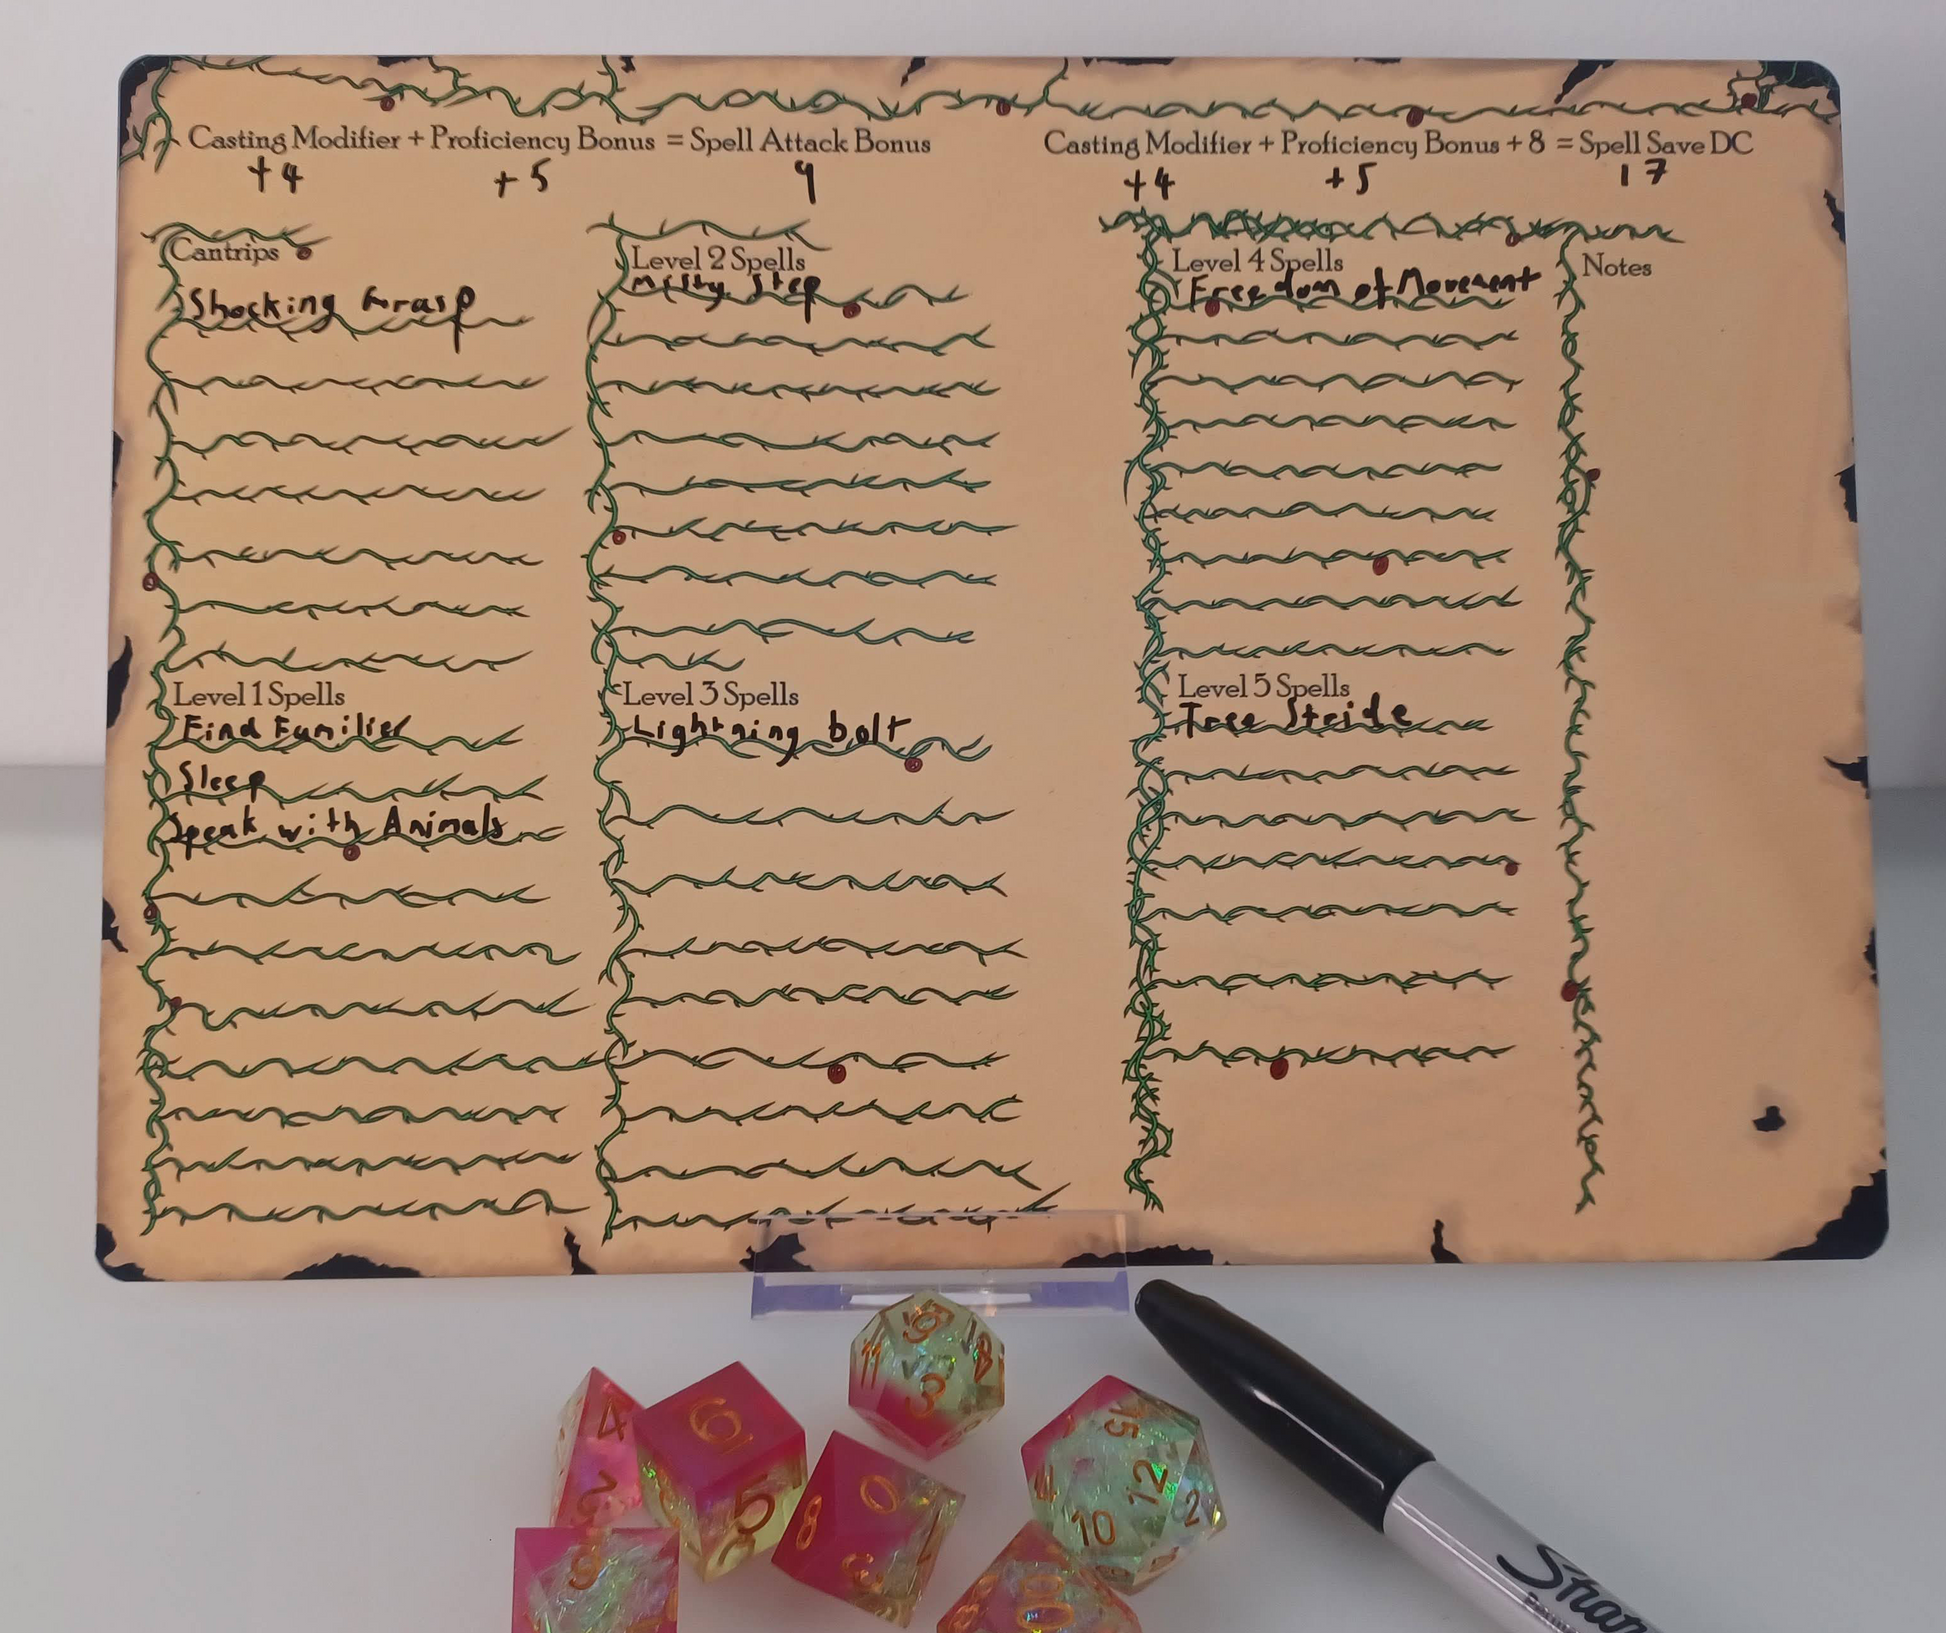 Casting Modifier + Proficiency Bonus = Spell Attack Bonus
+4 +5 9
Casting Modifier + Proficiency Bonus + 8 = Spell Save DC
+4 +5 17
Cantrips
Shocking Grasp
Level 1 Spells
Find Familier
Sleep
Speak with Animals
Level 2 Spells
Misty Step
Level 3 Spells
Lightning bolt
Level 4 Spells
Freedom of Movement
Level 5 Spells
Tree Stride
Notes
11
3
8
4
2
6
5
8
0
15
12
10
2
00